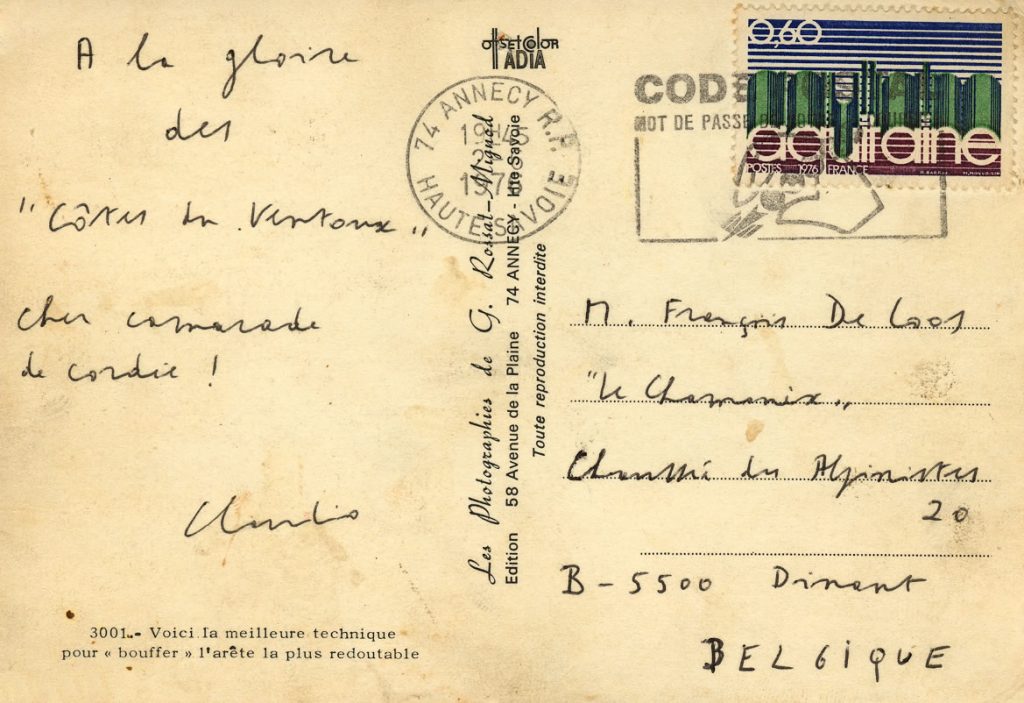 A la gloire
des
"Côtes du Ventoux"
cher camarade
de cordée !
Claudio
3001.- Voici la meilleure technique
pour « bouffer » l'arête la plus redoutable
offsetcolor
ADIA
Les Photographies de G. Rossat-Mignod
Edition 58 Avenue de la Plaine 74 ANNECY - Hte-Savoie
Toute reproduction interdite
74 ANNECY R.P.
19H45
HAUTE-SAVOIE
CODE
MOT DE PASSE
0,60
aquitaine
POSTES 1976 FRANCE
M. François De Loos
"Le Chamonix"
Chaussée des Alpinistes
20
B-5500 Dinant
BELGIQUE